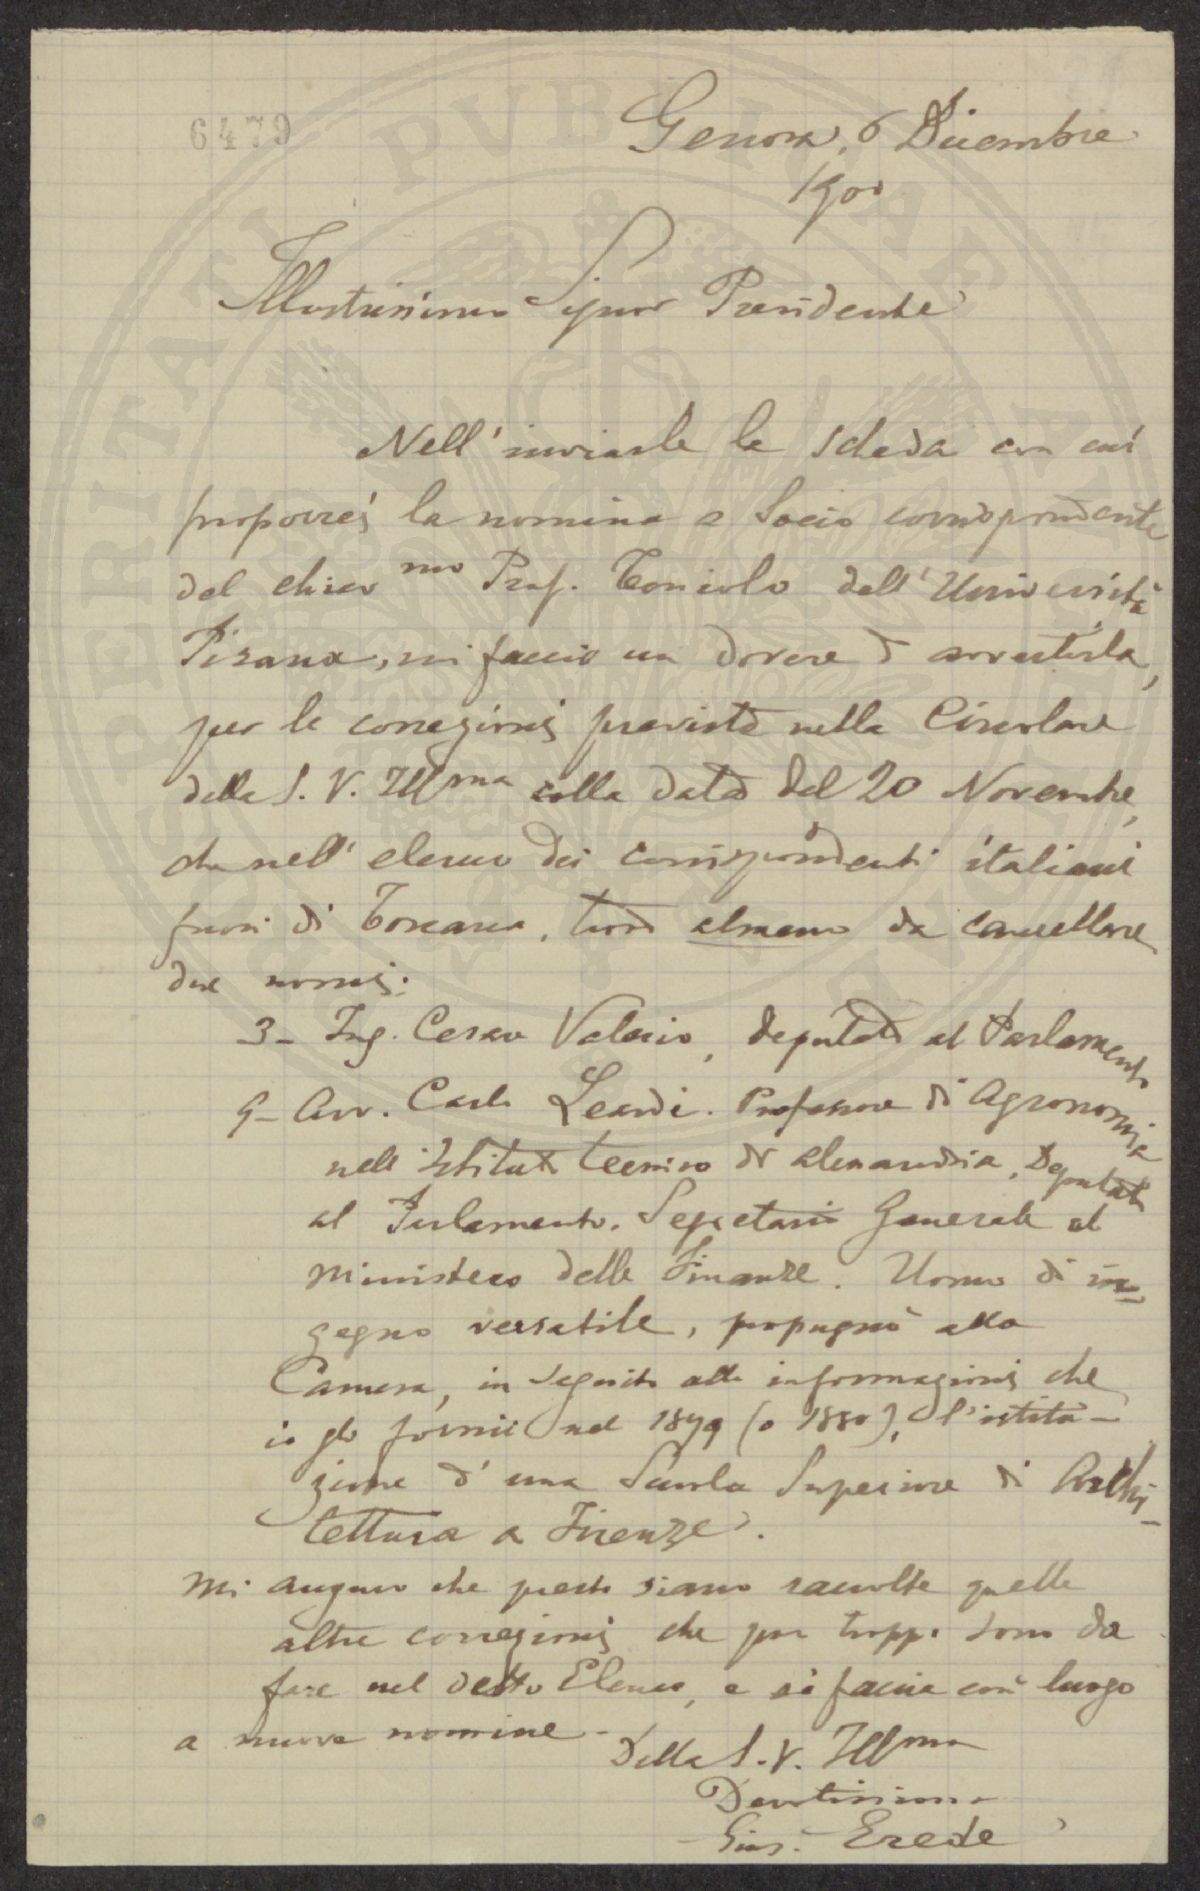 6479
Genova, 6 Dicembre
1900
Illustrissimo Signor Presidente
Nell' inviarle la scheda con cui
proporrei la nomina a Socio corrispondente
del chiar mo Prof. Toniolo dell' Università
Pisana, mi faccio un dovere d' avvertirla,
per le correzioni previste nella Circolare
della S. V. Ill ma colla data del 20 Novembre,
che nell' elenco dei corrispondenti italiani
fuori di Toscana, trovo almeno da cancellare
due nomi:
3- Ing. Cesare Valerio, deputato al Parlamento
9- Avv. Carlo Leardi. Professore di Agronomia
nell' Istituto tecnico di Alessandria, Deputato
al Parlamento. Segretario Generale al
Ministero delle Finanze. Uomo di in-
gegno versatile, propugnò alla
Camera, in seguito alle informazioni che
io gli fornii nel 1879 (o 1880), l'istitu-
zione d' una Scuola Superiore di Archi-
tettura a Firenze.
Mi auguro che presto siano raccolte quelle
altre correzioni che pur troppo sono da
fare nel detto Elenco, e si faccia così luogo
a nuove nomine.
Della S. V. Ill ma
Devotissimo
Gius. Erede
PROSPERITATI PVBLICAE AVGENDAE